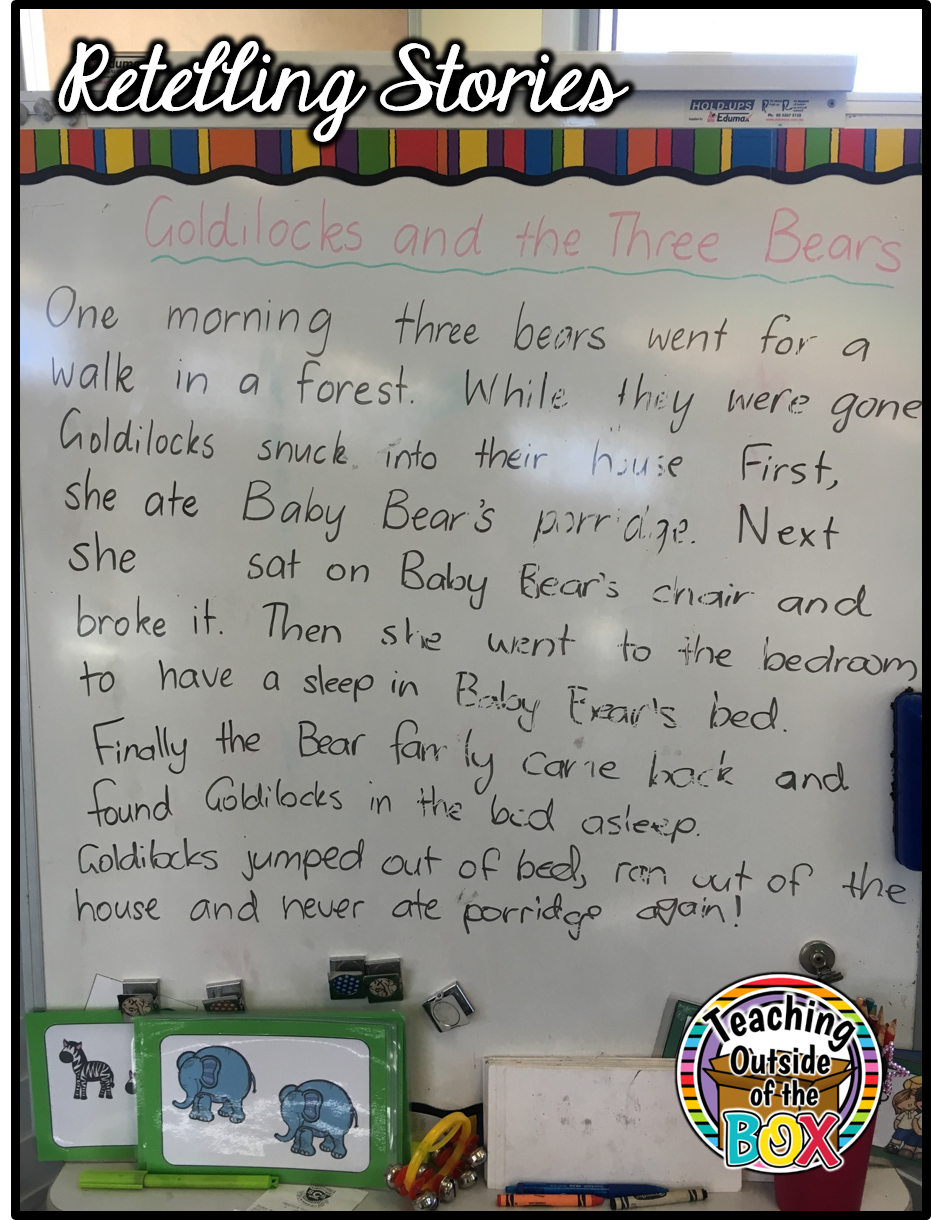 Retelling Stories
HOLD-UPS
Edumax
Goldilocks and the Three Bears
One morning three bears went for a
walk in a forest. While they were gone
Goldilocks snuck into their house First,
she ate Baby Bear's porridge. Next
she sat on Baby Bear's chair and
broke it. Then she went to the bedroom
to have a sleep in Baby Bear's bed.
Finally the Bear family came back and
found Goldilocks in the bed asleep.
Goldilocks jumped out of bed, ran out of the
house and never ate porridge again!
Teaching
Outside
of the
BOX